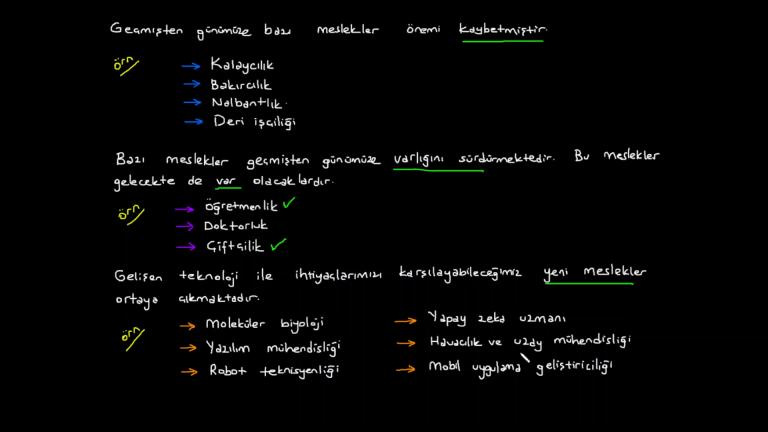 Geçmişten günümüze bazı meslekler önemi kaybetmiştir.
örn → Kalaycılık
→ Bakırcılık
→ Nalbantlık.
→ Deri işçiliği
Bazı meslekler geçmişten günümüze varlığını sürdürmektedir. Bu meslekler
gelecekte de var olacaklardır.
örn → Öğretmenlik ✓
→ Doktorluk
→ Çiftçilik ✓
Gelişen teknoloji ile ihtiyaçlarımızı karşılayabileceğimiz yeni meslekler
ortaya çıkmaktadır.
örn → Moleküler biyoloji → Yapay zeka uzmanı
→ Yazılım mühendisliği → Havacılık ve uzay mühendisliği
→ Robot teknisyenliği → Mobil uygulama geliştiriciliği